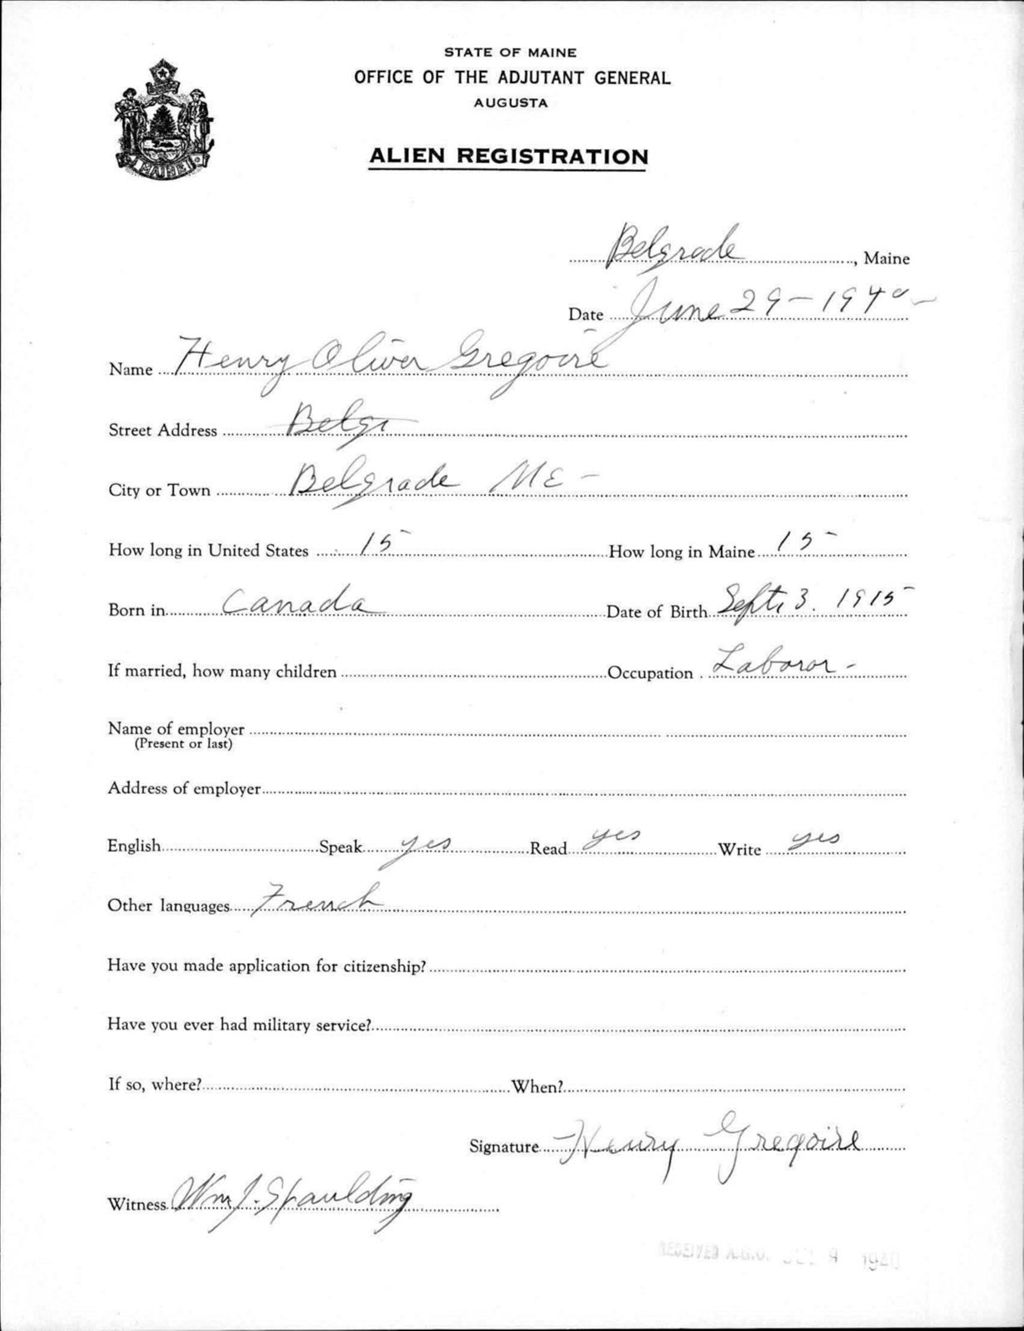 STATE OF MAINE
OFFICE OF THE ADJUTANT GENERAL
AUGUSTA
ALIEN REGISTRATION
MAINE
Belgrade, Maine
Date June 29-1940-
Name Henry Oliver Gregoire
Street Address Belgr
City or Town Belgrade ME-
How long in United States 15- How long in Maine 15-
Born in Canada Date of Birth Sept. 3. 1915
If married, how many children Occupation Laboror-
Name of employer
(Present or last)
Address of employer
English Speak yes Read yes Write yes
Other languages French
Have you made application for citizenship?
Have you ever had military service?
If so, where? When?
Signature Henry Gregoire
Witness Wm J. Spaulding
RECEIVED A.G.O. JUL 9 1940